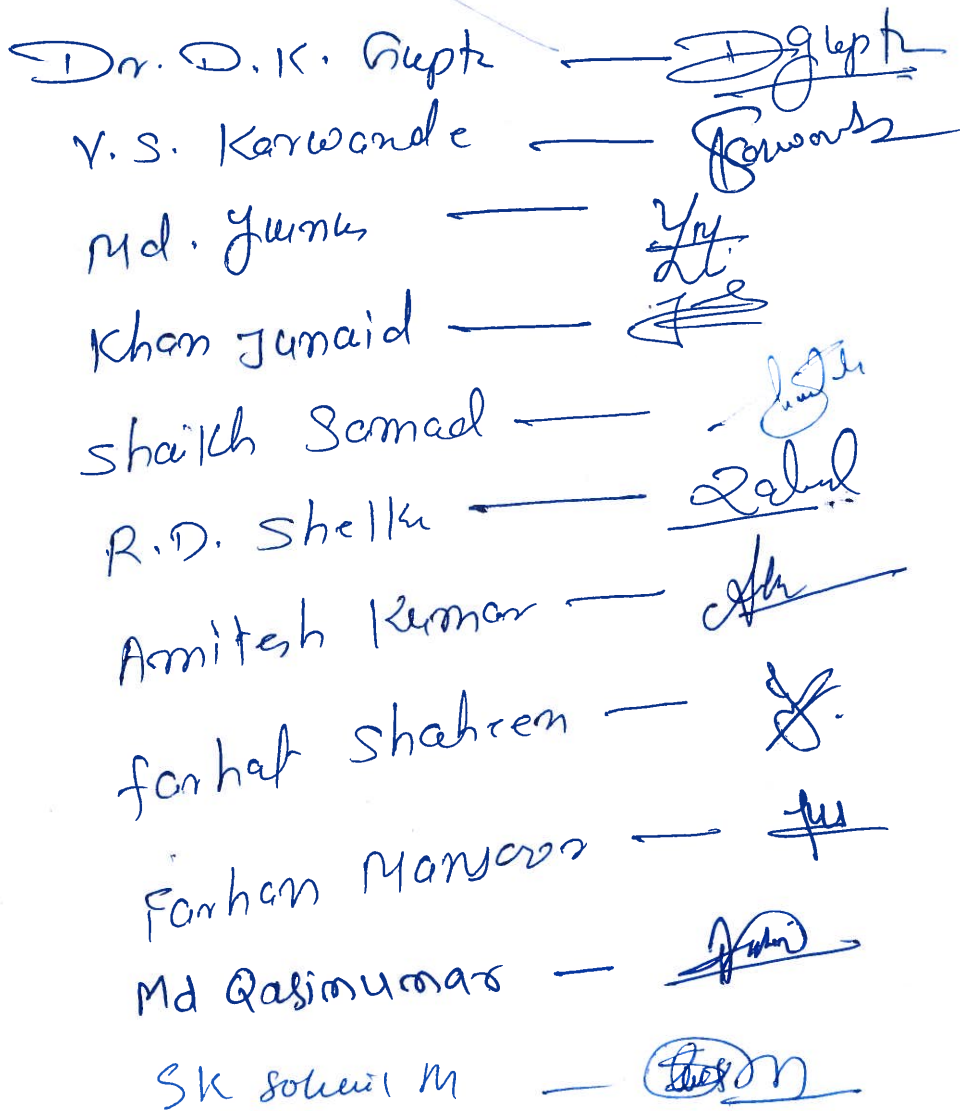 Dr. D. K. Gupta — DGupta
V. S. Karwande —
Md. Yunus —
Khan Junaid —
Shaikh Samad —
R. D. Shelke — Rahul
Amitesh Kumar —
farhat Shaheen —
Farhan Mansoor —
Md Qasimumar —
SK Soheil M —